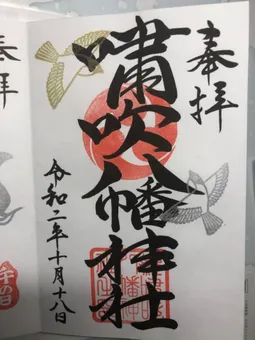 奉拝
嘯吹八幡神社
令和二年十月十八日
奉拝